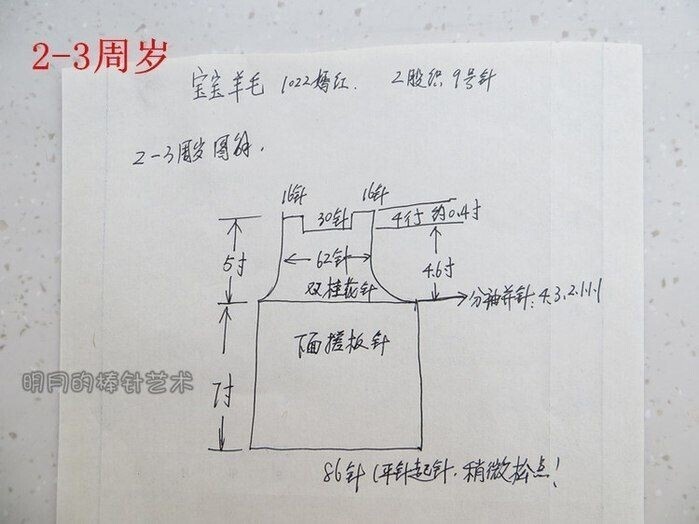 2-3周岁
宝宝羊毛 1022嫣红. 2股织 9号针
2-3周岁图解.
16针 16针
30针
4行 约0.4寸
5寸
62针
4.6寸
双桂花针
分袖并针: 4.3.2.1.1.1
下面搓板针
明月的棒针艺术
7寸
86针 (平针起针. 稍微松点!